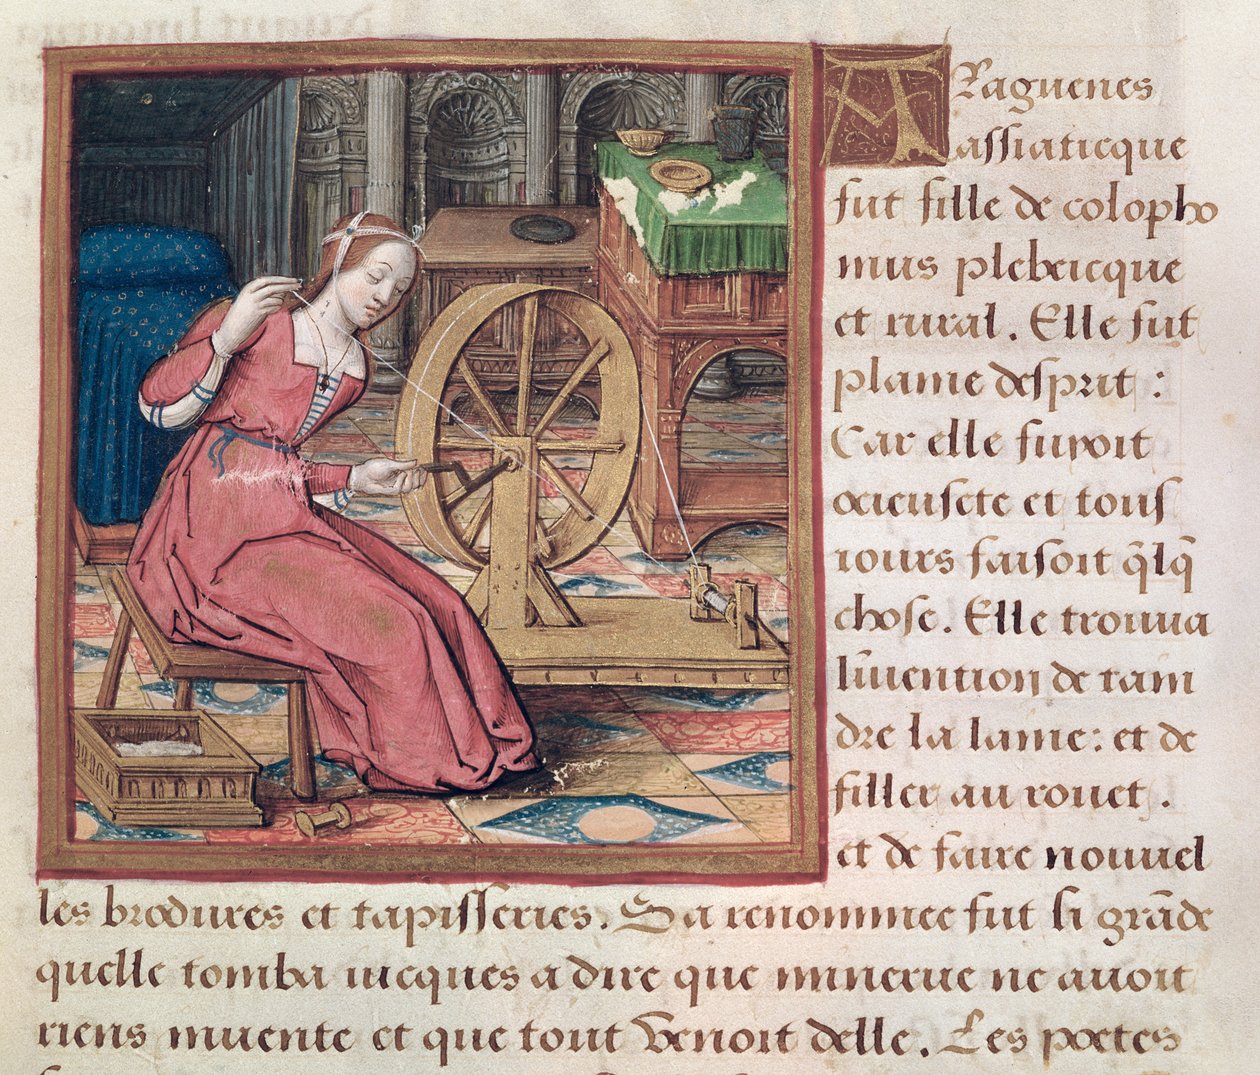 ARaguenes
assiaticque
fut fille de colopho
mus plebeicque
et rural. Elle fut
plaine desprit :
Car elle supoit
et tous
iours faisoit q̃lq̃
chose. Elle trouua
lĩuention de tain
dre la laine: et de
filler au rouet.
et de faire nouuel
les brodures et tapisseries. Sa renommee fut si grãde
quelle tomba iucques a dire que minerue ne auoit
riens inuente et que tout venoit delle. Les poetes